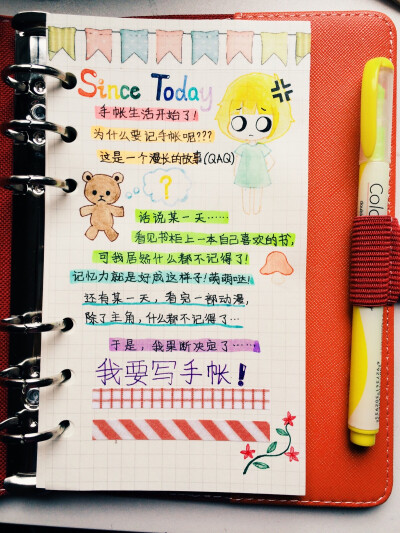 Since Today
手帐生活开始了!
为什么要记手帐呢???
这是一个漫长的故事(QAQ)
?
话说某一天……
看见书柜上一本自己喜欢的书,
可我居然什么都不记得了!
记忆力就是好成这样子!萌萌哒!
还有某一天,看完一部动漫,
除了主角,什么都不记得了…
于是,我果断决定了……
我要写手帐!